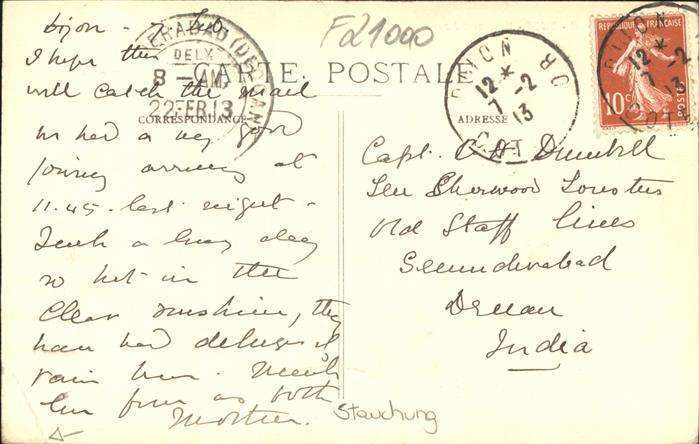 Dijon - 7 Feb
I hope this
will catch the mail
we had a very good
journey arriving at
11.45. last night -
Such a day
so hot in the
clear sunshine, they
have had deluges of
rain here. Much
love from us both
Mother.
Fd 1000
CARTE POSTALE
CORRESPONDANCE
ADRESSE
ERABAD (DECCAN)
DELY.
8 - AM
22 FER 13
DIJON RO
12 *
7 - 2
13
COT
REPUBLIQUE FRANÇAISE
10c
DIJON
12 *
7 - 2
13
COT
Capt. Dunbell
Sherwood Foresters
Old Staff Lines
Secunderabad
Deccan
India
Stauchung